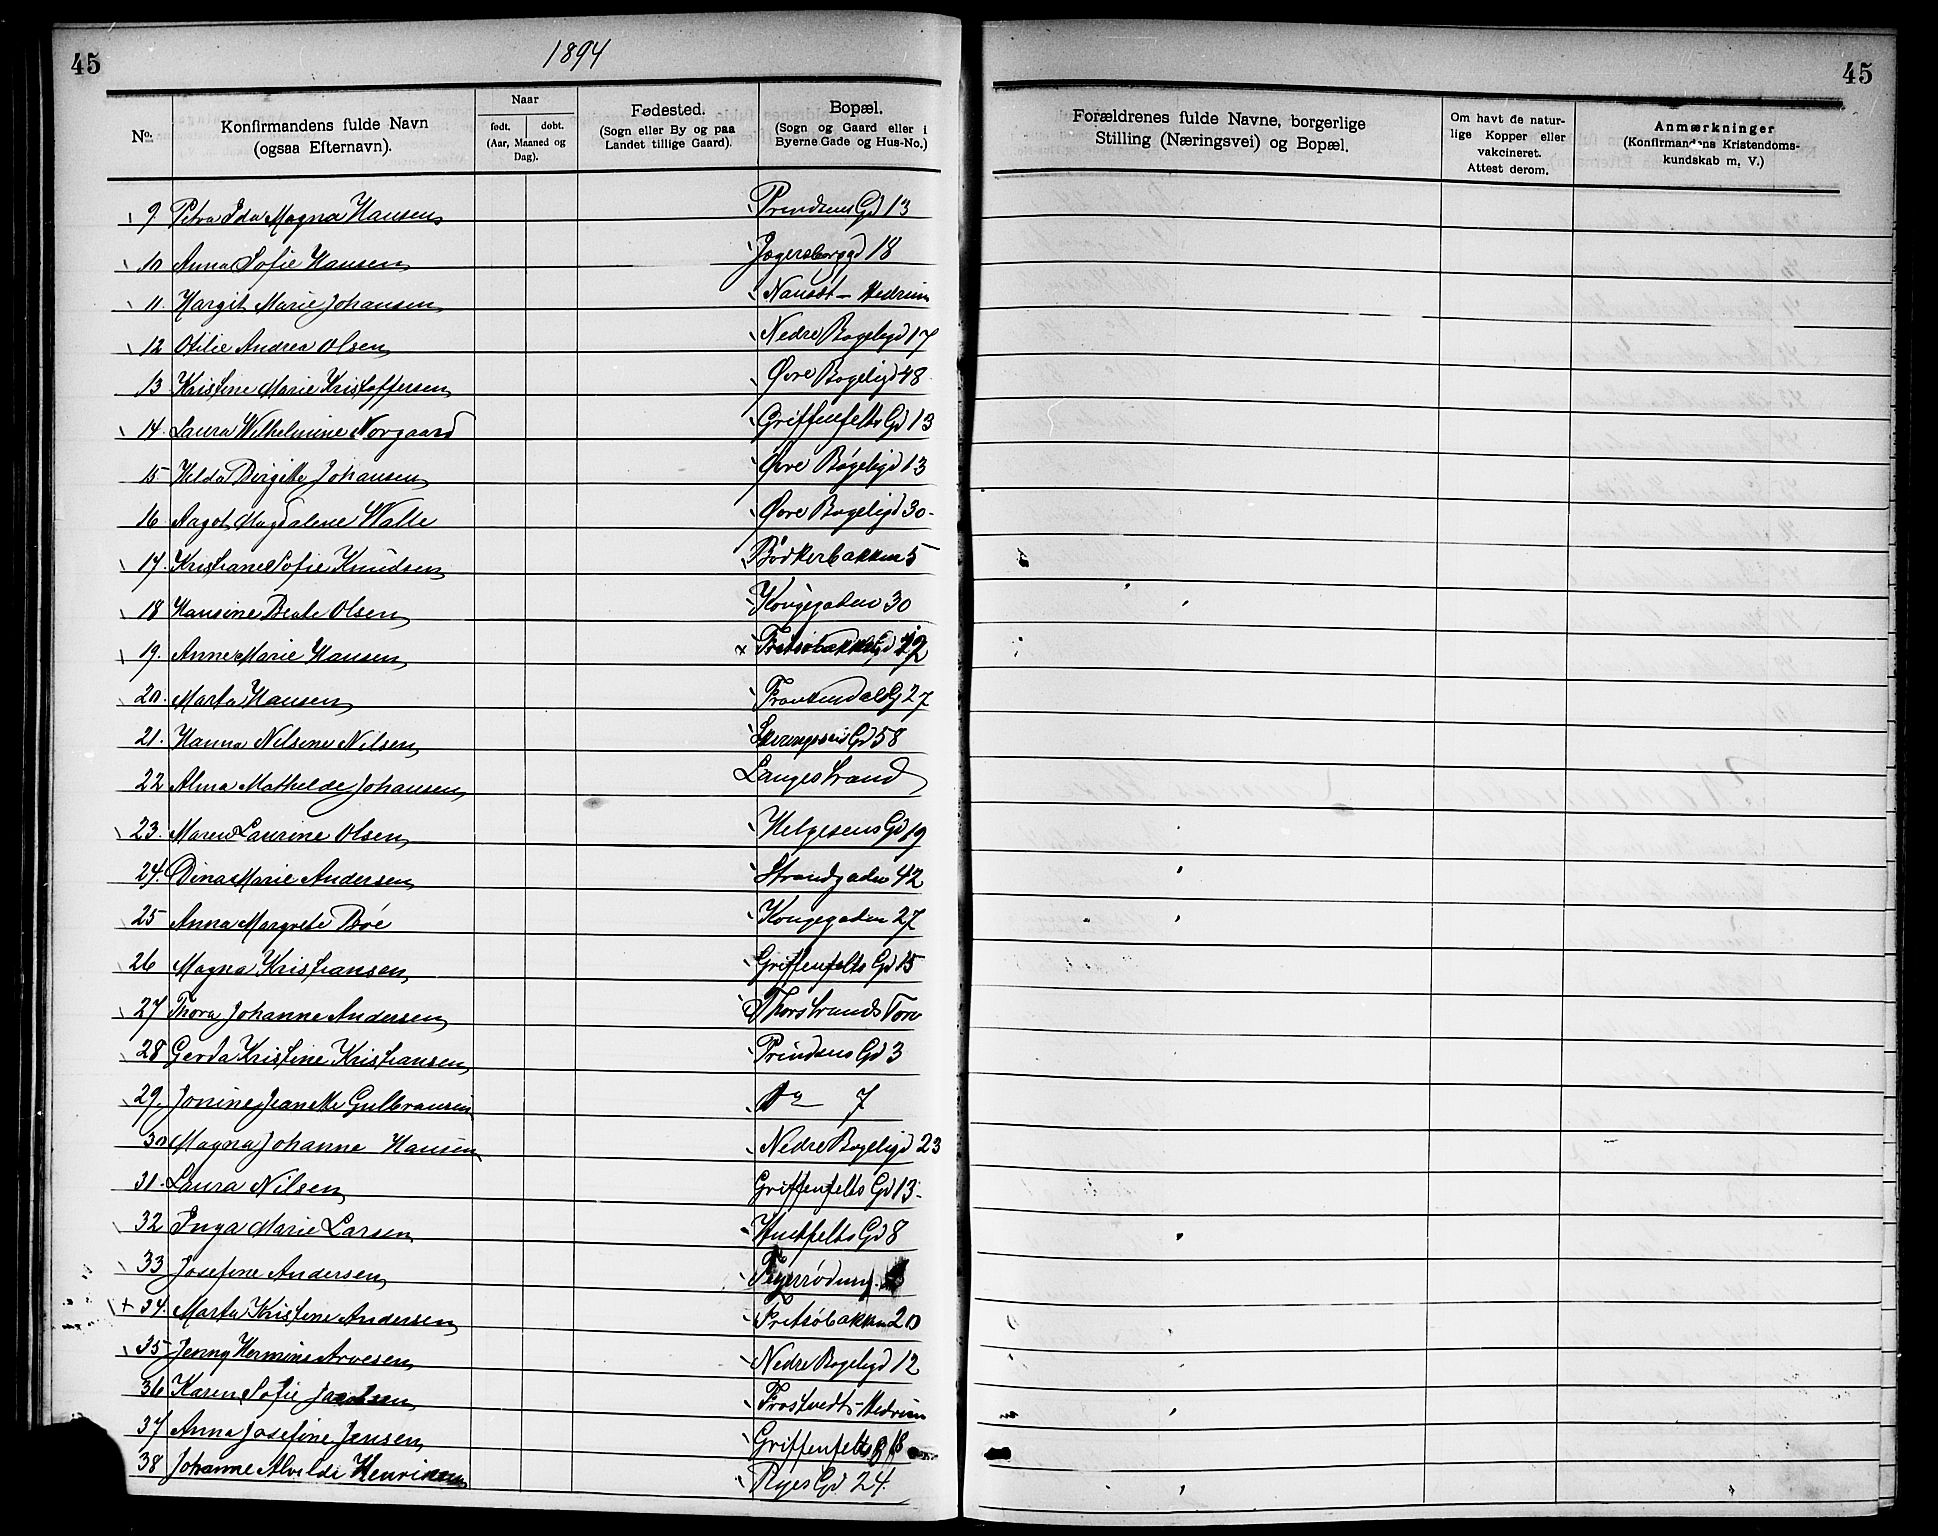 45
1894
45
No.
Konfirmandens fulde Navn
(ogsaa Efternavn).
Naar
født.
døbt.
(Aar, Maaned og
Dag).
Fødested.
(Sogn eller By og paa
Landet tillige Gaard).
Bopæl.
(Sogn og Gaard eller i
Byerne Gade og Hus-No.)
Forældrenes fulde Navne, borgerlige
Stilling (Næringsvei) og Bopæl.
Om havt de natur-
lige Kopper eller
vakcineret.
Attest derom.
Anmærkninger
(Konfirmandens Kristendoms-
kundskab m. V.)
9 Petra Ida Magna Hansen Prindsens Gd 13
10 Anna Sofie Hansen Jegersborggd 18
11. Hargit Marie Johansen Nansdt - Hedrum
12 Otilie Andrea Olsen Nedre Bøgeligd 17
13 Kristine Marie Kristoffersen Øvre Bøgeligd 48
14. Laura Wilhelmine Norgaard Griffenfelts Gd 13
15 Hilda Birgitte Johansen Øvre Bøgeligd 13
16 Aagot Magdalene Walle Øvre Bøgeligd 30
17. Kristiane Sofie Knudsen Bødkerbakken 5
18 Hansine Beate Olsen Kongegaden 30
19. Anne Marie Hansen
20. Marta Hansen Frankendals G 27
21. Hanna Nilsine Nilsen Gd 58
22 Alma Mathelde Johansen Langestrand
23. Maren Laurine Olsen Helgesens Gd 19
24. Dina Marie Andersen Strandgaden 42
25 Anna Margrete Bøe Kongegaden 27
26 Magna Kristiansen Griffenfelts Gd 15
27 Thora Johanne Andersen Thorstrands Torv
28 Gerda Kristine Kristiansen Prindsens Gd 3
29. Jonine Jeanette Gulbransen Do 7
30 Magna Johanne Hansen Nedre Bøgeligd 23
31. Laura Nilsen Griffenfelts Gd 13
32 Inga Marie Larsen Huitfelts Gd 8
33 Josefine Andersen
+ 34. Marta Kristine Andersen Fritsøbakken 20
35 Jenny Hermine Arvesen Nedre Bøgeligd 12
36 Karen Sofie Jacobsen Frostvedt - Hedrum
37 Anna Josefine Jensen Griffenfelts
38 Johanne Alvilde Henriksen Ryes Gd 24.